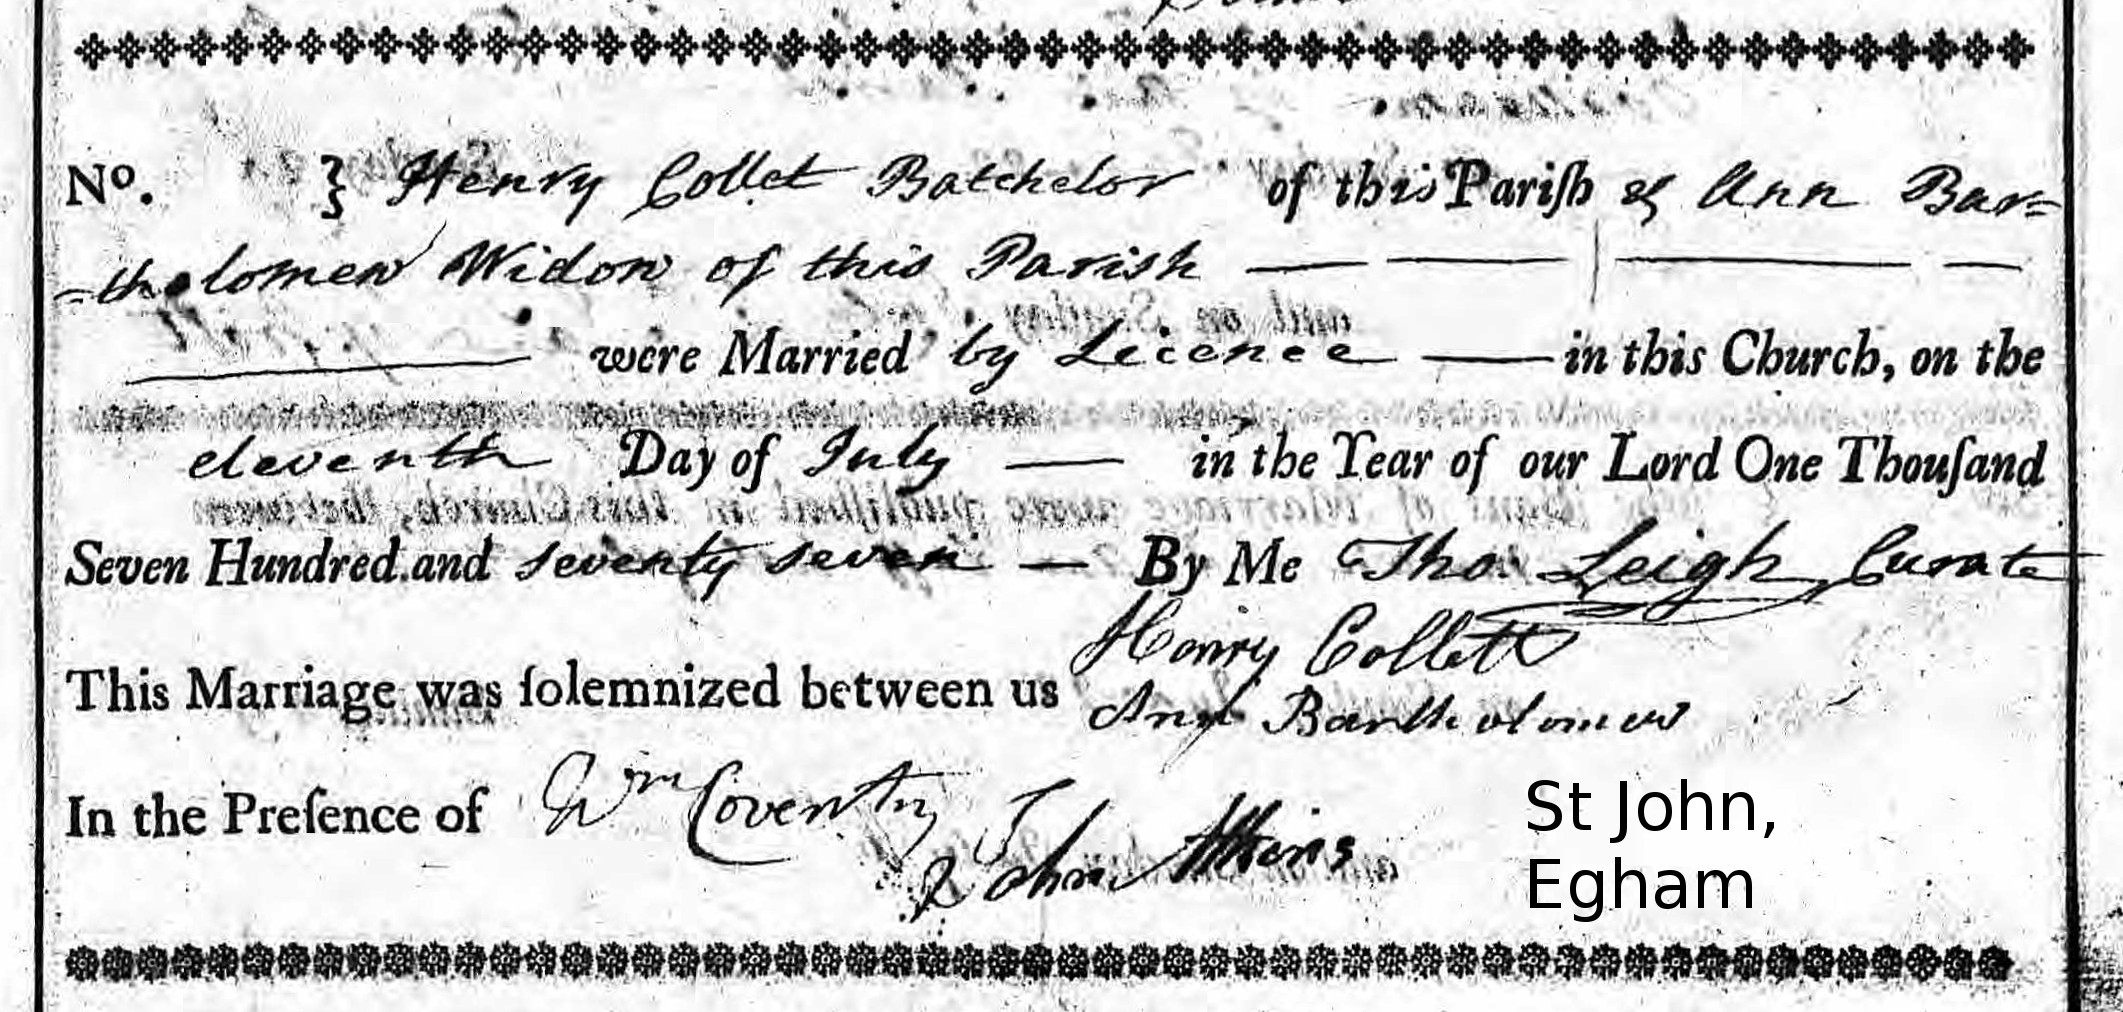 No. } Henry Collet Batchelor of this Pariſh & Ann Bar=
=tholomew Widow of this Parish
were Married by Licence in this Church, on the
eleventh Day of July in the Year of our Lord One Thouſand
Seven Hundred and seventy seven By Me Tho. Leigh, Curate
Henry Collett
This Marriage was ſolemnized between us
Ann Bartholomew
In the Preſence of Wm Coventry
John Atkins
St John,
Egham